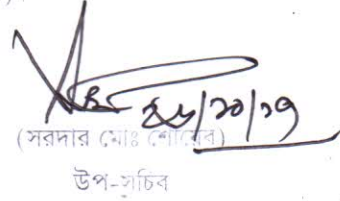 ২৬/১০/১৭
(সরদার মোঃ শোয়েব)
উপ-সচিব